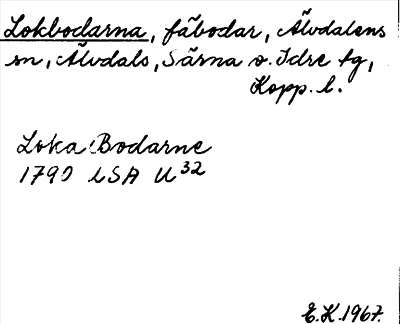 Lokbodarna, fäbodar, Älvdalens
sn, Älvdals, Särna o. Idre tg,
Kopp. l.
Loka Bodarne
1790 LSA U32
E.K.1967.